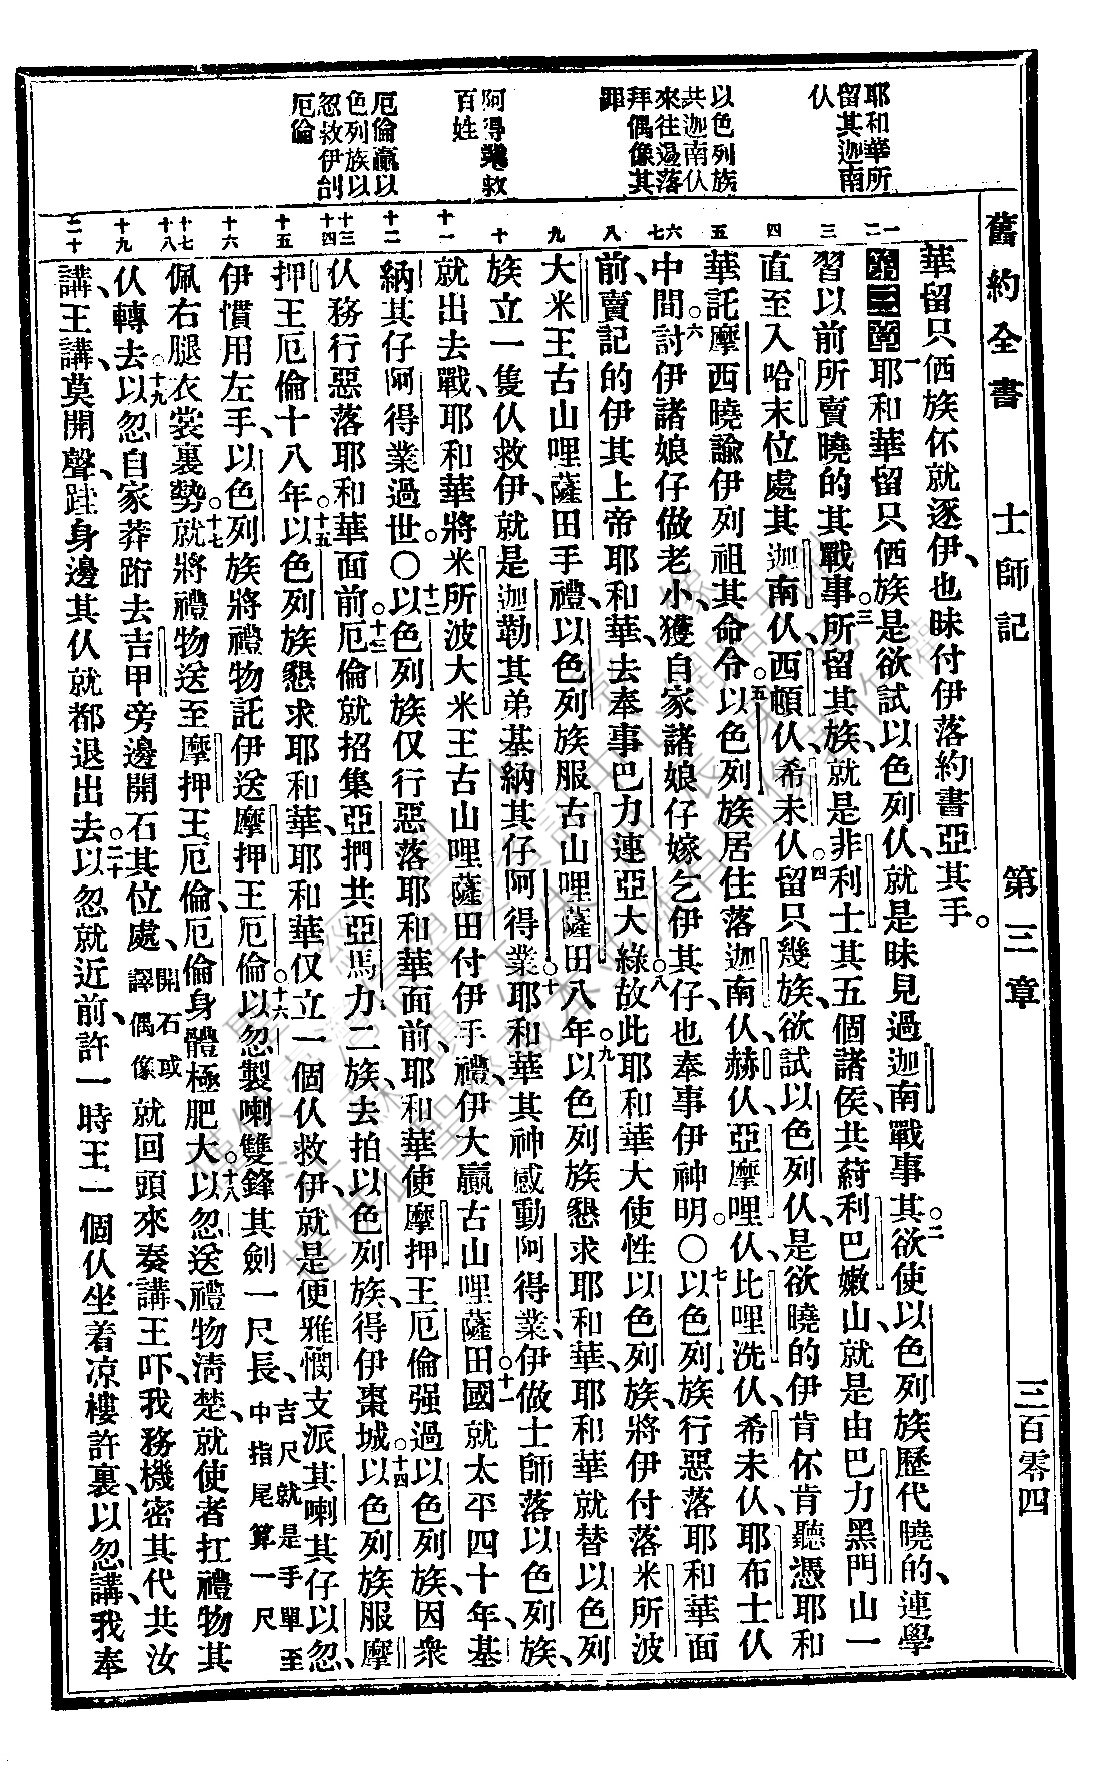 舊約全書 士師記 第三章 三百零四
耶和華所
留其迦南
仫
以色列族
共迦南仫
來往過落
拜偶像其
罪
阿得業救
百姓
厄倫贏以
色列族以
忽救伊刣
厄倫
一 二 三 四 五 六 七 八 九 十 十一 十二 十三 十四 十五 十六 十七 十八 十九 二十
華留只㑚族伓就逐伊、也昧付伊落約書亞其手。
第三章 一耶和華留只㑚族是欲試以色列仫、就是昧見過迦南戰事其。二欲使以色列族歷代曉的、連學
習以前所賣曉的其戰事。三所留其族、就是非利士其五個諸侯、共葯利巴嫩山、就是由巴力黑門山一
直至入哈末位處其迦南仫、西頓仫、希未仫。四留只幾族、欲試以色列仫、是欲曉的伊肯伓肯聽憑耶和
華託摩西曉諭伊列祖其命令。五以色列族居住落迦南仫、赫仫、亞摩哩仫、比哩洗仫、希未仫、耶布士仫
中間。六討伊諸娘仔做老小、獲自家諸娘仔嫁乞伊其仔、也奉事伊神明。〇七以色列族行惡落耶和華面
前、賣記的伊其上帝耶和華、去奉事巴力連亞大綠。八故此耶和華大使性以色列族、將伊付落米所波
大米王古山哩薩田手禮、以色列族服古山哩薩田八年。九以色列族懇求耶和華、耶和華就替以色列
族立一隻仫救伊、就是迦勒其弟基納其仔阿得業。十耶和華其神感動阿得業、伊做士師落以色列族、
就出去戰、耶和華將米所波大米王古山哩薩田付伊手禮、伊大贏古山哩薩田。十一國就太平四十年、基
納其仔阿得業過世。〇十二以色列族仅行惡落耶和華面前、耶和華使摩押王厄倫强過以色列族、因衆
仫務行惡落耶和華面前。十三厄倫就招集亞捫共亞馬力二族、去拍以色列族、得伊棗城。十四以色列族服摩
押王厄倫十八年。十五以色列族懇求耶和華、耶和華仅立一個仫救伊、就是便雅憫支派其喇其仔以忽、
伊慣用左手、以色列族將禮物託伊送摩押王厄倫。十六以忽製喇雙鋒其劍一尺長、吉尺就是手單至中指尾算一尺
佩右腿衣裳裏勢。十七就將禮物送至摩押王厄倫、厄倫身體極肥大。十八以忽送禮物清楚、就使者扛禮物其
仫轉去。十九以忽自家莽跔去吉甲旁邊開石其位處、開石或譯偶像 就回頭來奏講、王吓、我務機密其代共汝
講、王講、莫開聲、跬身邊其仫就都退出去。二十以忽就近前、許一時王一個仫坐着凉樓許裏、以忽講、我奉